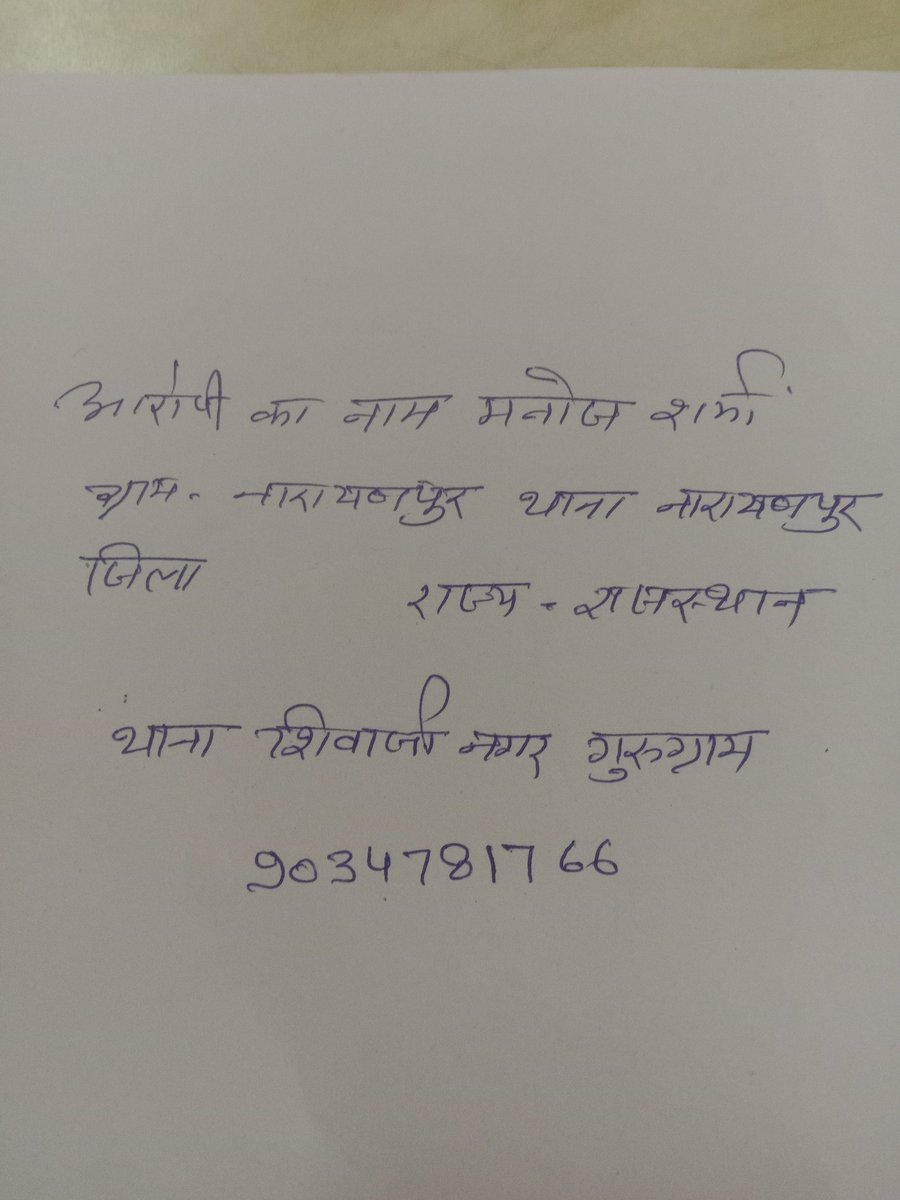 आरोपी का नाम मनोज शर्मा
ग्राम - नारायणपुर थाना नारायणपुर
जिला राज्य - राजस्थान
थाना शिवाजी नगर गुरुग्राम
9034781766